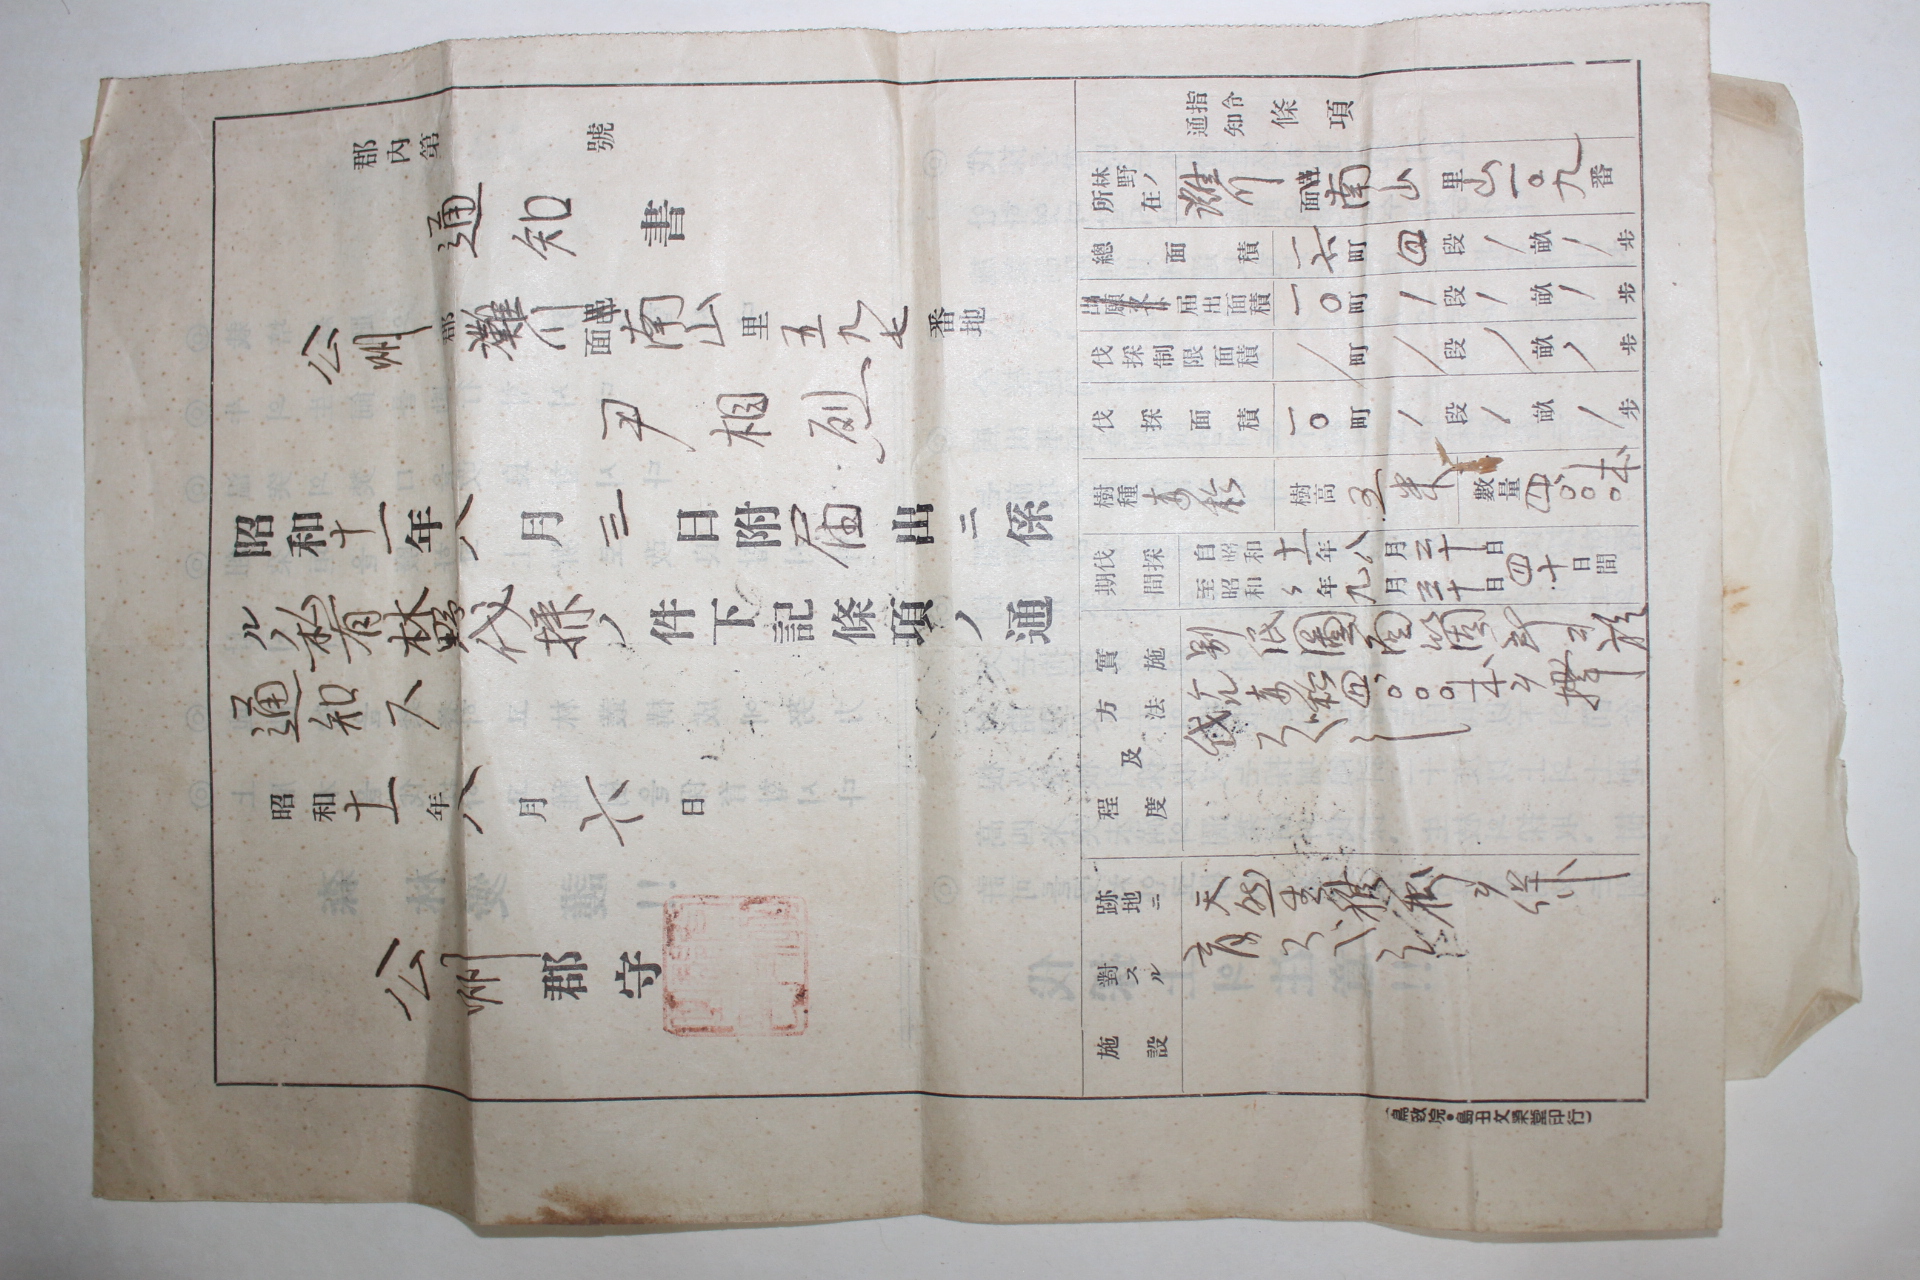 郡內第　　　號
通知書
公州郡灘川面邑南山里五九七番地
尹相烈
昭和十一年八月三日附届出ニ係
ル私有林野伐採ノ件下記條項ノ通
通知ス
昭和十一年八月六日
公州郡守
指令
通知
條項
林野ノ
所在
灘川面邑南山里山一〇九番
總面積 一六町四段／畝／步
出願又ハ届出面積 一〇町／段／畝／步
伐採制限面積 ／町／段／畝／步
伐採面積 一〇町／段／畝／步
樹種 赤松 樹高 五米 數量 四、〇〇〇本
伐採
期間
自昭和十一年八月二十日
至昭和〃年九月三十日
四十日間
實施
方法
及
程度
別紙圖面箇所ニ於
テ赤松四、〇〇〇本ヲ擇
伐スベシ
跡地ニ
對スル
施設
天然生稚樹ヲ保
育スベシ
(鳥致院・島田文榮堂印行)